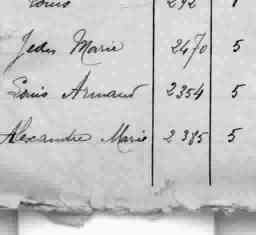 Louis 292
Jeden Marie 2470 5
Louis Armand 2354 5
Alexandre Marie 2385 5